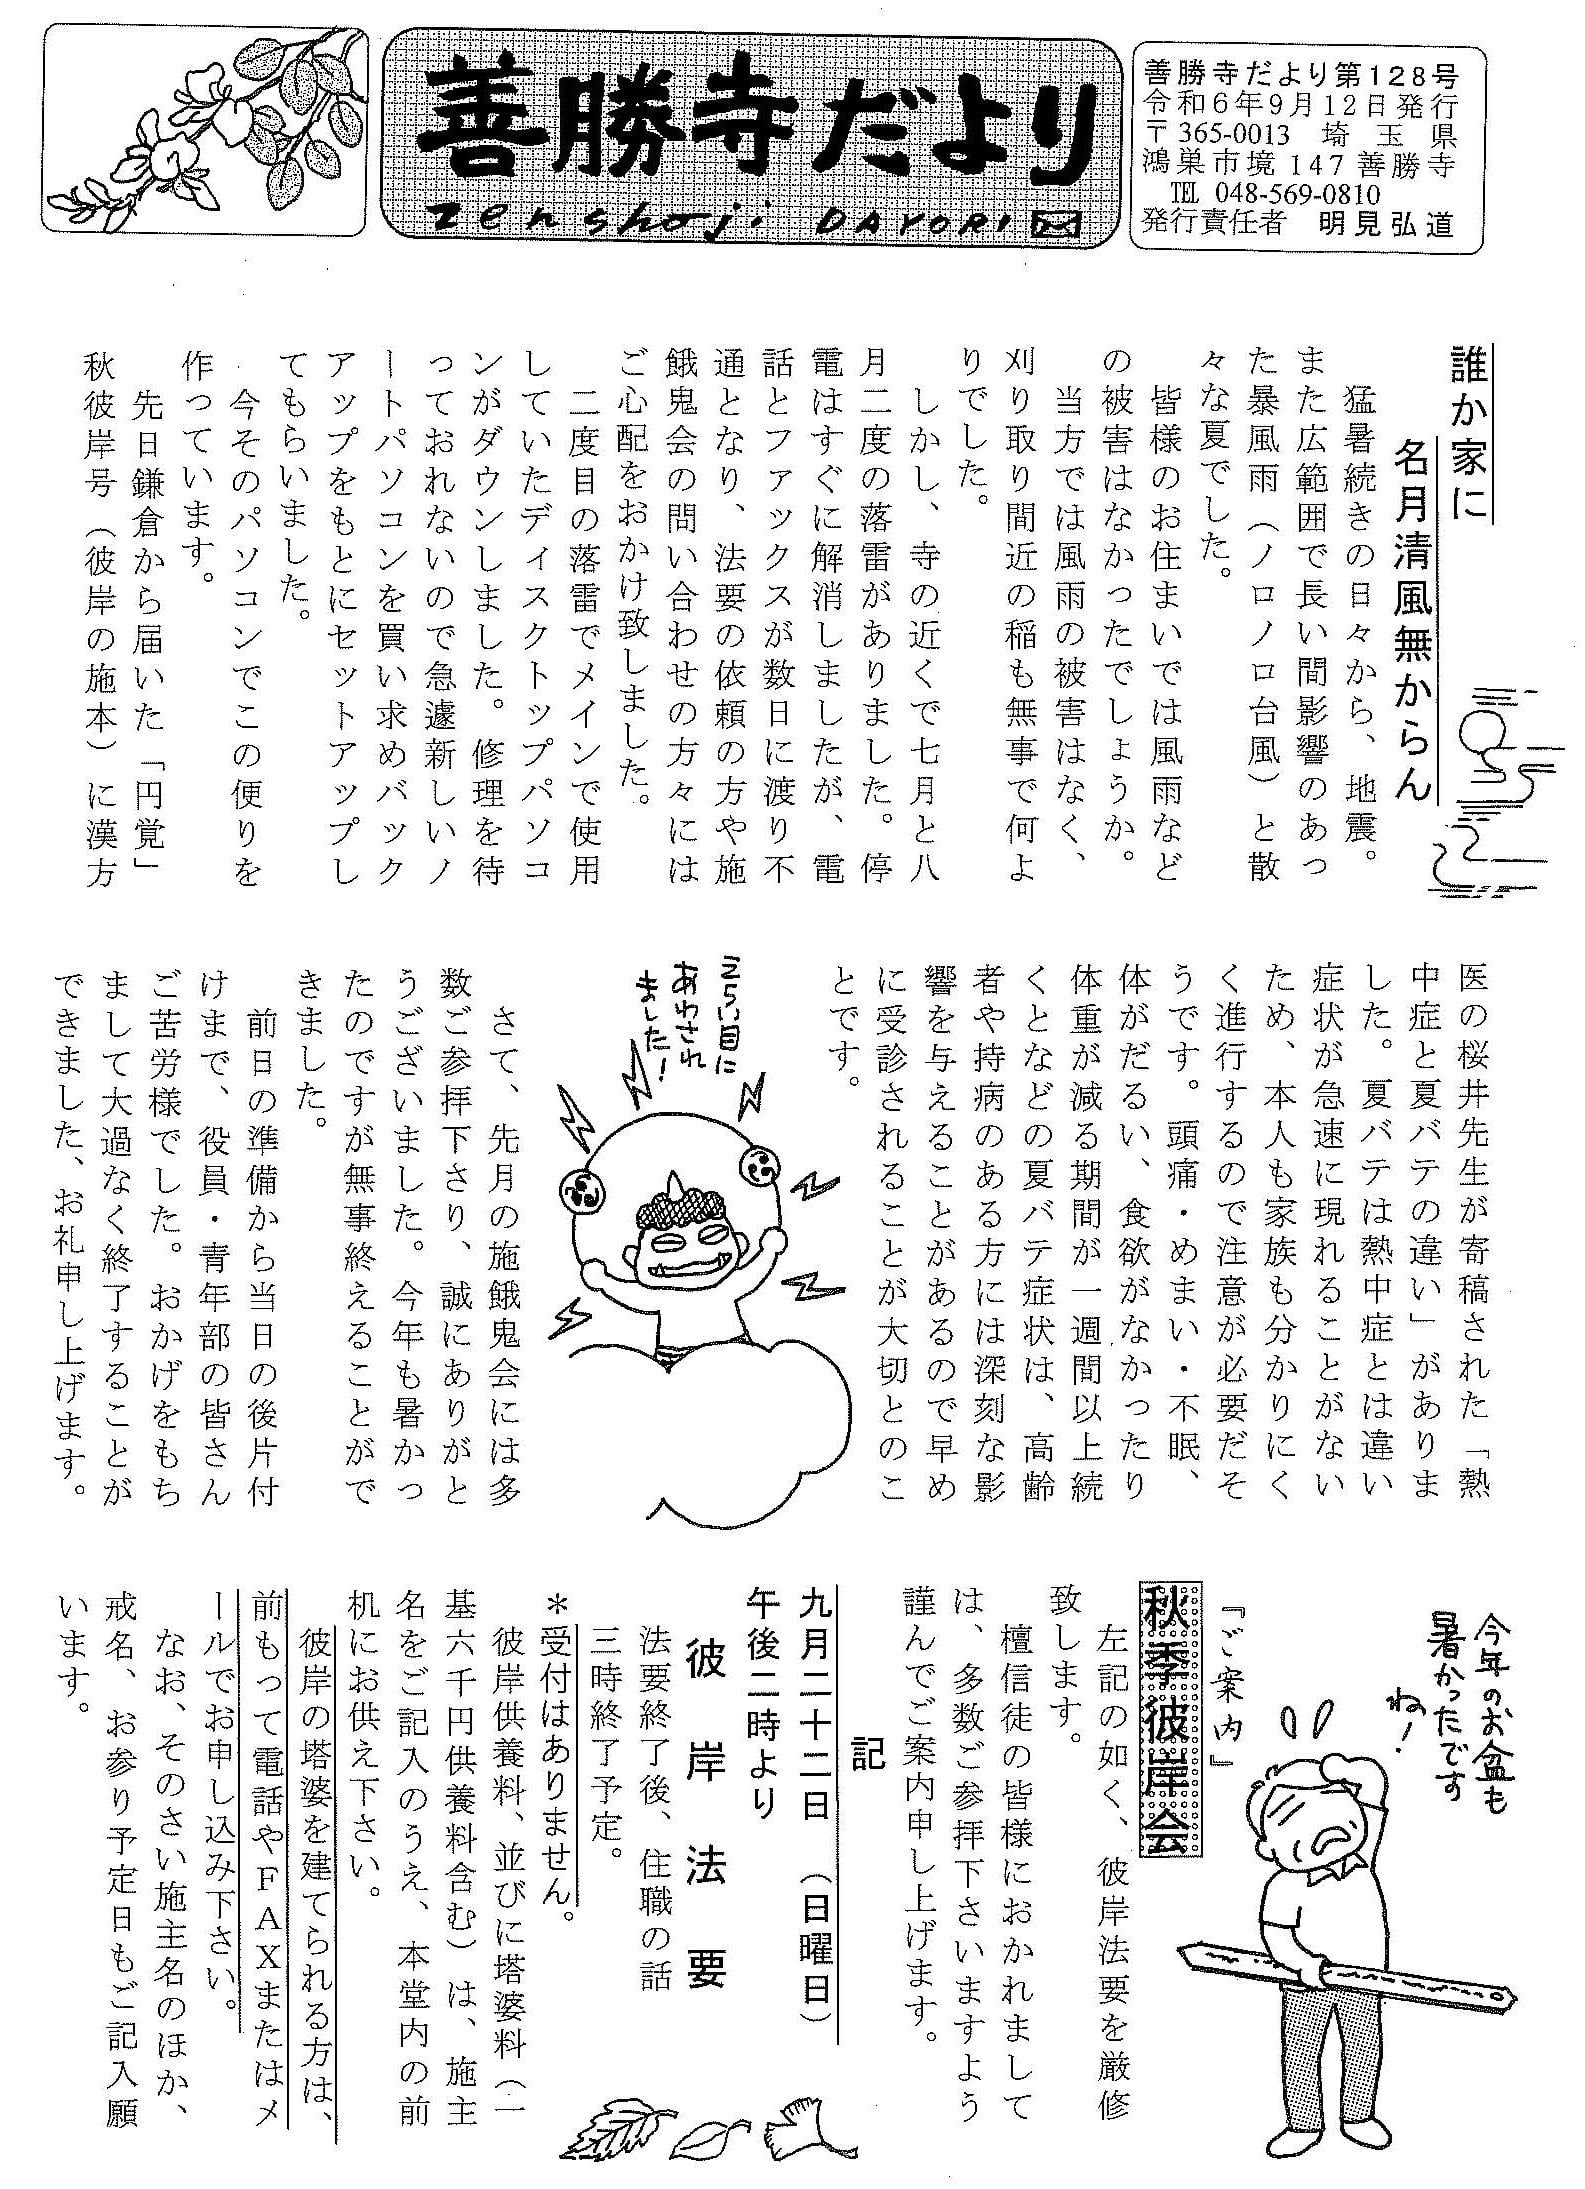 善勝寺だより
zenshoji DAYORI
善勝寺だより第128号
令和6年9月12日発行
〒365-0013 埼玉県
鴻巣市境147善勝寺
℡ 048-569-0810
発行責任者 明見弘道
誰か家に
名月清風無からん
猛暑続きの日々から、地震。
また広範囲で長い間影響のあっ
た暴風雨（ノロノロ台風）と散
々な夏でした。
皆様のお住まいでは風雨など
の被害はなかったでしょうか。
当方では風雨の被害はなく、
刈り取り間近の稲も無事で何よ
りでした。
しかし、寺の近くで七月と八
月二度の落雷がありました。停
電はすぐに解消しましたが、電
話とファックスが数日に渡り不
通となり、法要の依頼の方や施
餓鬼会の問い合わせの方々には
ご心配をおかけ致しました。
二度目の落雷でメインで使用
していたディスクトップパソコ
ンがダウンしました。修理を待
っておれないので急遽新しいノ
ートパソコンを買い求めバック
アップをもとにセットアップし
てもらいました。
今そのパソコンでこの便りを
作っています。
先日鎌倉から届いた「円覚」
秋彼岸号（彼岸の施本）に漢方
医の桜井先生が寄稿された「熱
中症と夏バテの違い」がありま
した。夏バテは熱中症とは違い
症状が急速に現れることがない
ため、本人も家族も分かりにく
く進行するので注意が必要だそ
うです。頭痛・めまい・不眠、
体がだるい、食欲がなかったり
体重が減る期間が一週間以上続
くとなどの夏バテ症状は、高齢
者や持病のある方には深刻な影
響を与えることがあるので早め
に受診されることが大切とのこ
とです。
えらい目に
あわされ
ました！
さて、先月の施餓鬼会には多
数ご参拝下さり、誠にありがと
うございました。今年も暑かっ
たのですが無事終えることがで
きました。
前日の準備から当日の後片付
けまで、役員・青年部の皆さん
ご苦労様でした。おかげをもち
まして大過なく終了することが
できました、お礼申し上げます。
今年のお盆も
暑かったです
ね！
『ご案内』
秋季彼岸会
左記の如く、彼岸法要を厳修
致します。
檀信徒の皆様におかれまして
は、多数ご参拝下さいますよう
謹んでご案内申し上げます。
記
九月二十二日（日曜日）
午後二時より
彼岸法要
法要終了後、住職の話
三時終了予定。
＊受付はありません。
彼岸供養料、並びに塔婆料（一
基六千円供養料含む）は、施主
名をご記入のうえ、本堂内の前
机にお供え下さい。
彼岸の塔婆を建てられる方は、
前もって電話やFAXまたはメ
ールでお申し込み下さい。
なお、そのさい施主名のほか、
戒名、お参り予定日もご記入願
います。